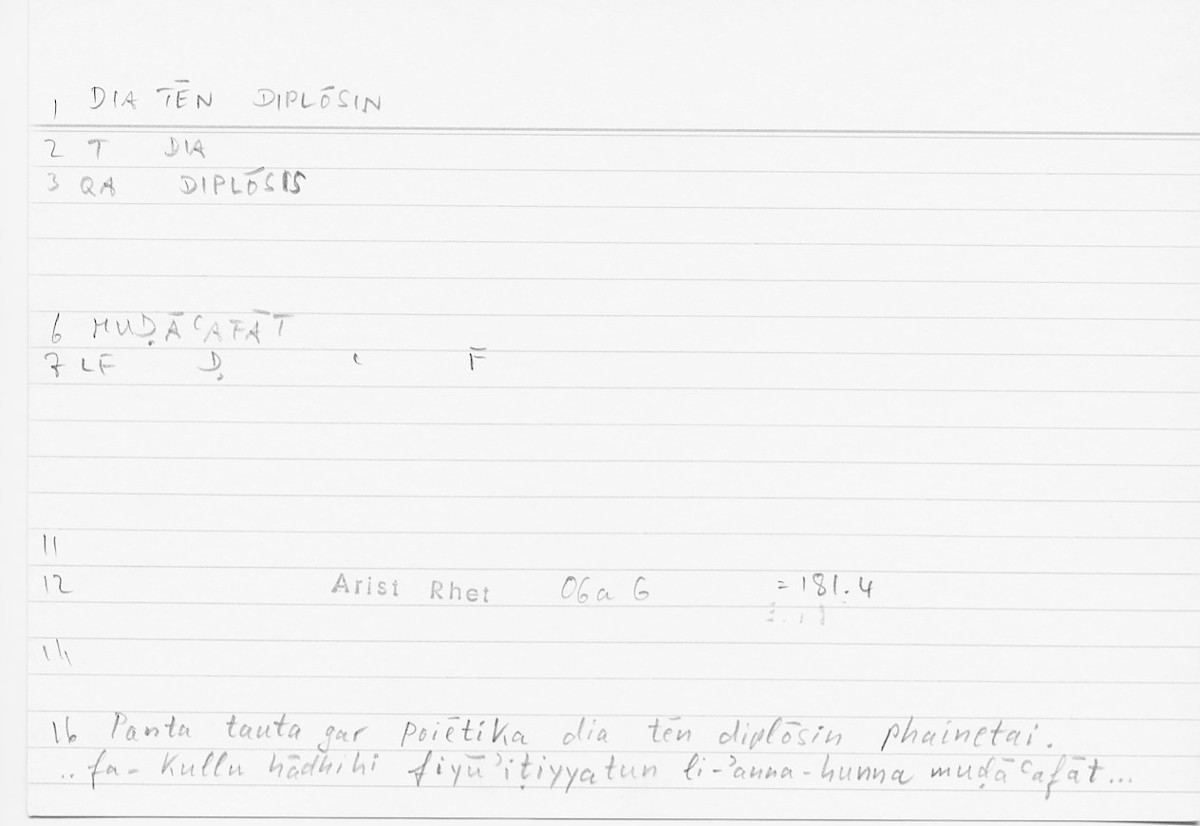 1 DIA TĒN DIPLŌSIN
2 T DIA
3 QA DIPLŌSIS
6 MUḌĀʿAFĀT
7 LF Ḍ ʿ F̄
11
12 Arist Rhet 06a6 = 181.4
14
16 Panta tauta gar poiētika dia tēn diplōsin phainetai.
.. fa- kullu hādhihi fiyūʾiṭiyyatun li-ʾanna-hunna muḍāʿafāt...